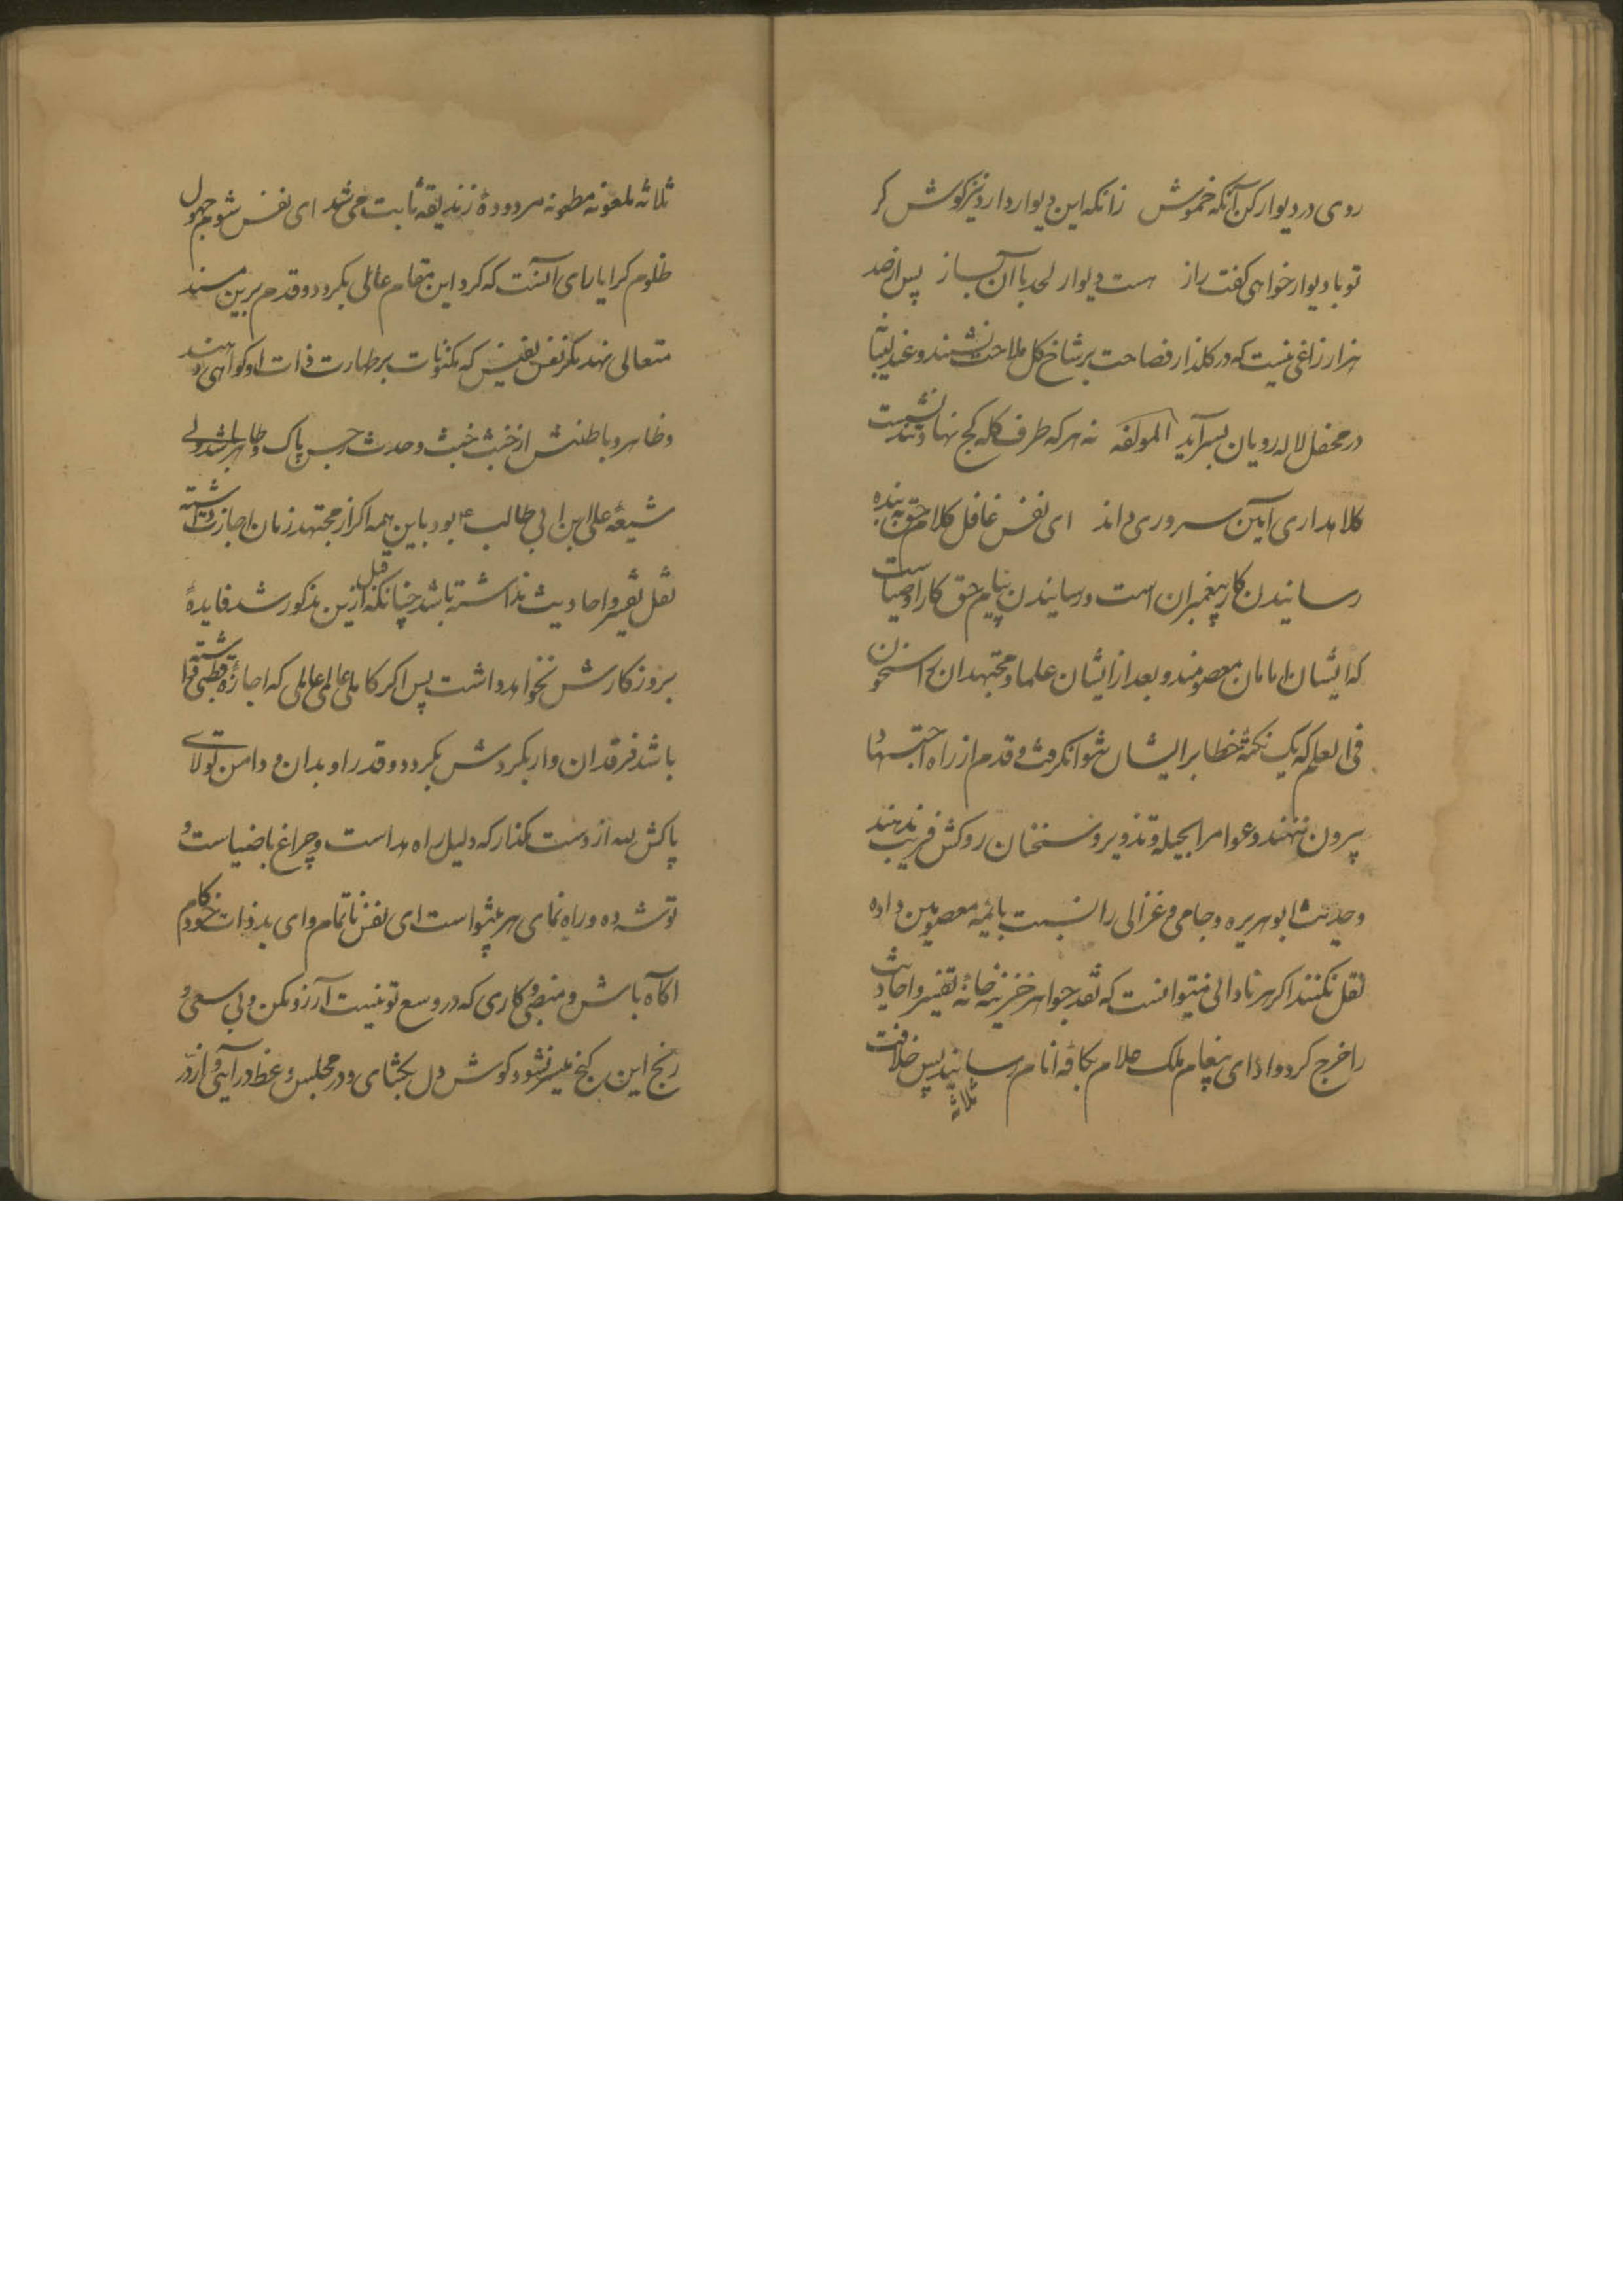 روی در دیوار کن آنکه خموش زانکه این دیوار دارد نیز کوش کر
تو با دیوار خواهی کفت راز هست دیوار لحد با آن بساز پس از صد
هزار زاغی نیست که در کلذار فصاحت بر شاخ کل ملاحت نشیند و عندلیبانه
در محفل لاله رویان بسرآید المولفه نه هر که طرف کله کج نهاد و تند نشست
کلاهداری آیین سروری داند ای نفس غافل کلام حق به بنده
رسانیدن کار پیغمبران است و رسانیدن پیام حق کار اوصیاست
که ایشان امامان معصومند و بعد از ایشان علما و مجتهدان راسخون
فی العلم که یک نکتهٔ خطا بر ایشان نتوان کرفت و قدم از راه اجتهاد
بیرون ننهند و عوام را بحیله و تذویر و سخنان روکش فریب ندهند
و حدیث ابوهریره و جامی و غزالی را نسبت بائمه معصومین داده
نقل نکنند اکر هر نادانی میتوانست که نقد جواهر خزینه خانهٔ تفسیر و احادیث
را خرج کردو ادای پیغام ملک علام بکافه انام رسانید پس خلافت
ثلاثه
ثلاثه ملعونه مطعونه مردودهٔ زندیقه ثابت می شد ای نفس شوم جهول
ظلوم کرا یارای آنست که کرد این مقام عالی بکردد و قدم برین مسند
متعالی نهد مکر نفس نفیس که مکنونات بر طهارت ذات او کواهی دهند
و ظاهر و باطنش از خبث خبث و حدث رجس پاک و طاهر باشد ولے
شیعهٔ علی ابن ابی طالب ع بود با این همه اکر از مجتهد زمان اجازت داشته
نقل تفسیر و احادیث نداشته باشد چنانکه قبل ازین مذکور شد فایدهٔ
بروز کارش نخواهد داشت پس اکر کاملی عالمی عاملی که اجازهٔ
باشد فرقدان وار بکردش بکرد و قدر او بدان و دامن تولای
پاکش را از دست مکذار که دلیل راه هداست و چراغ با ضیاست و
توشه ده و راه نمای هر پیشواست ای نفس ناتمام و ای بد ذات خودکام
اکاه باش و منصبی و کاری که در وسع تو نیست آرزو مکن و بی سعی و
رنج این کنج میسر نشود کوش دل بکشای و در مجلس وعظ در آیی و از در